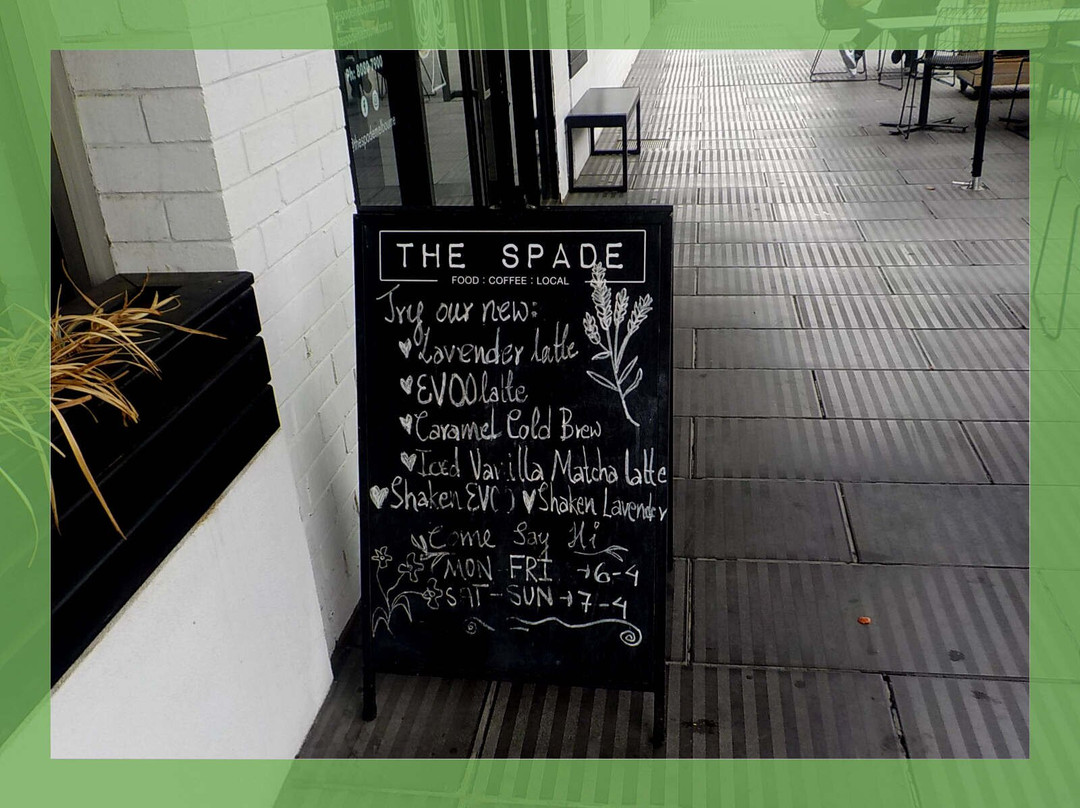 THE SPADE
FOOD : COFFEE : LOCAL
Try our new:
Lavender latte
EVOO latte
Caramel Cold Brew
Iced Vanilla Matcha latte
Shaken EVOO Shaken Lavender
Come Say Hi
MON FRI → 6-4
SAT-SUN → 7-4